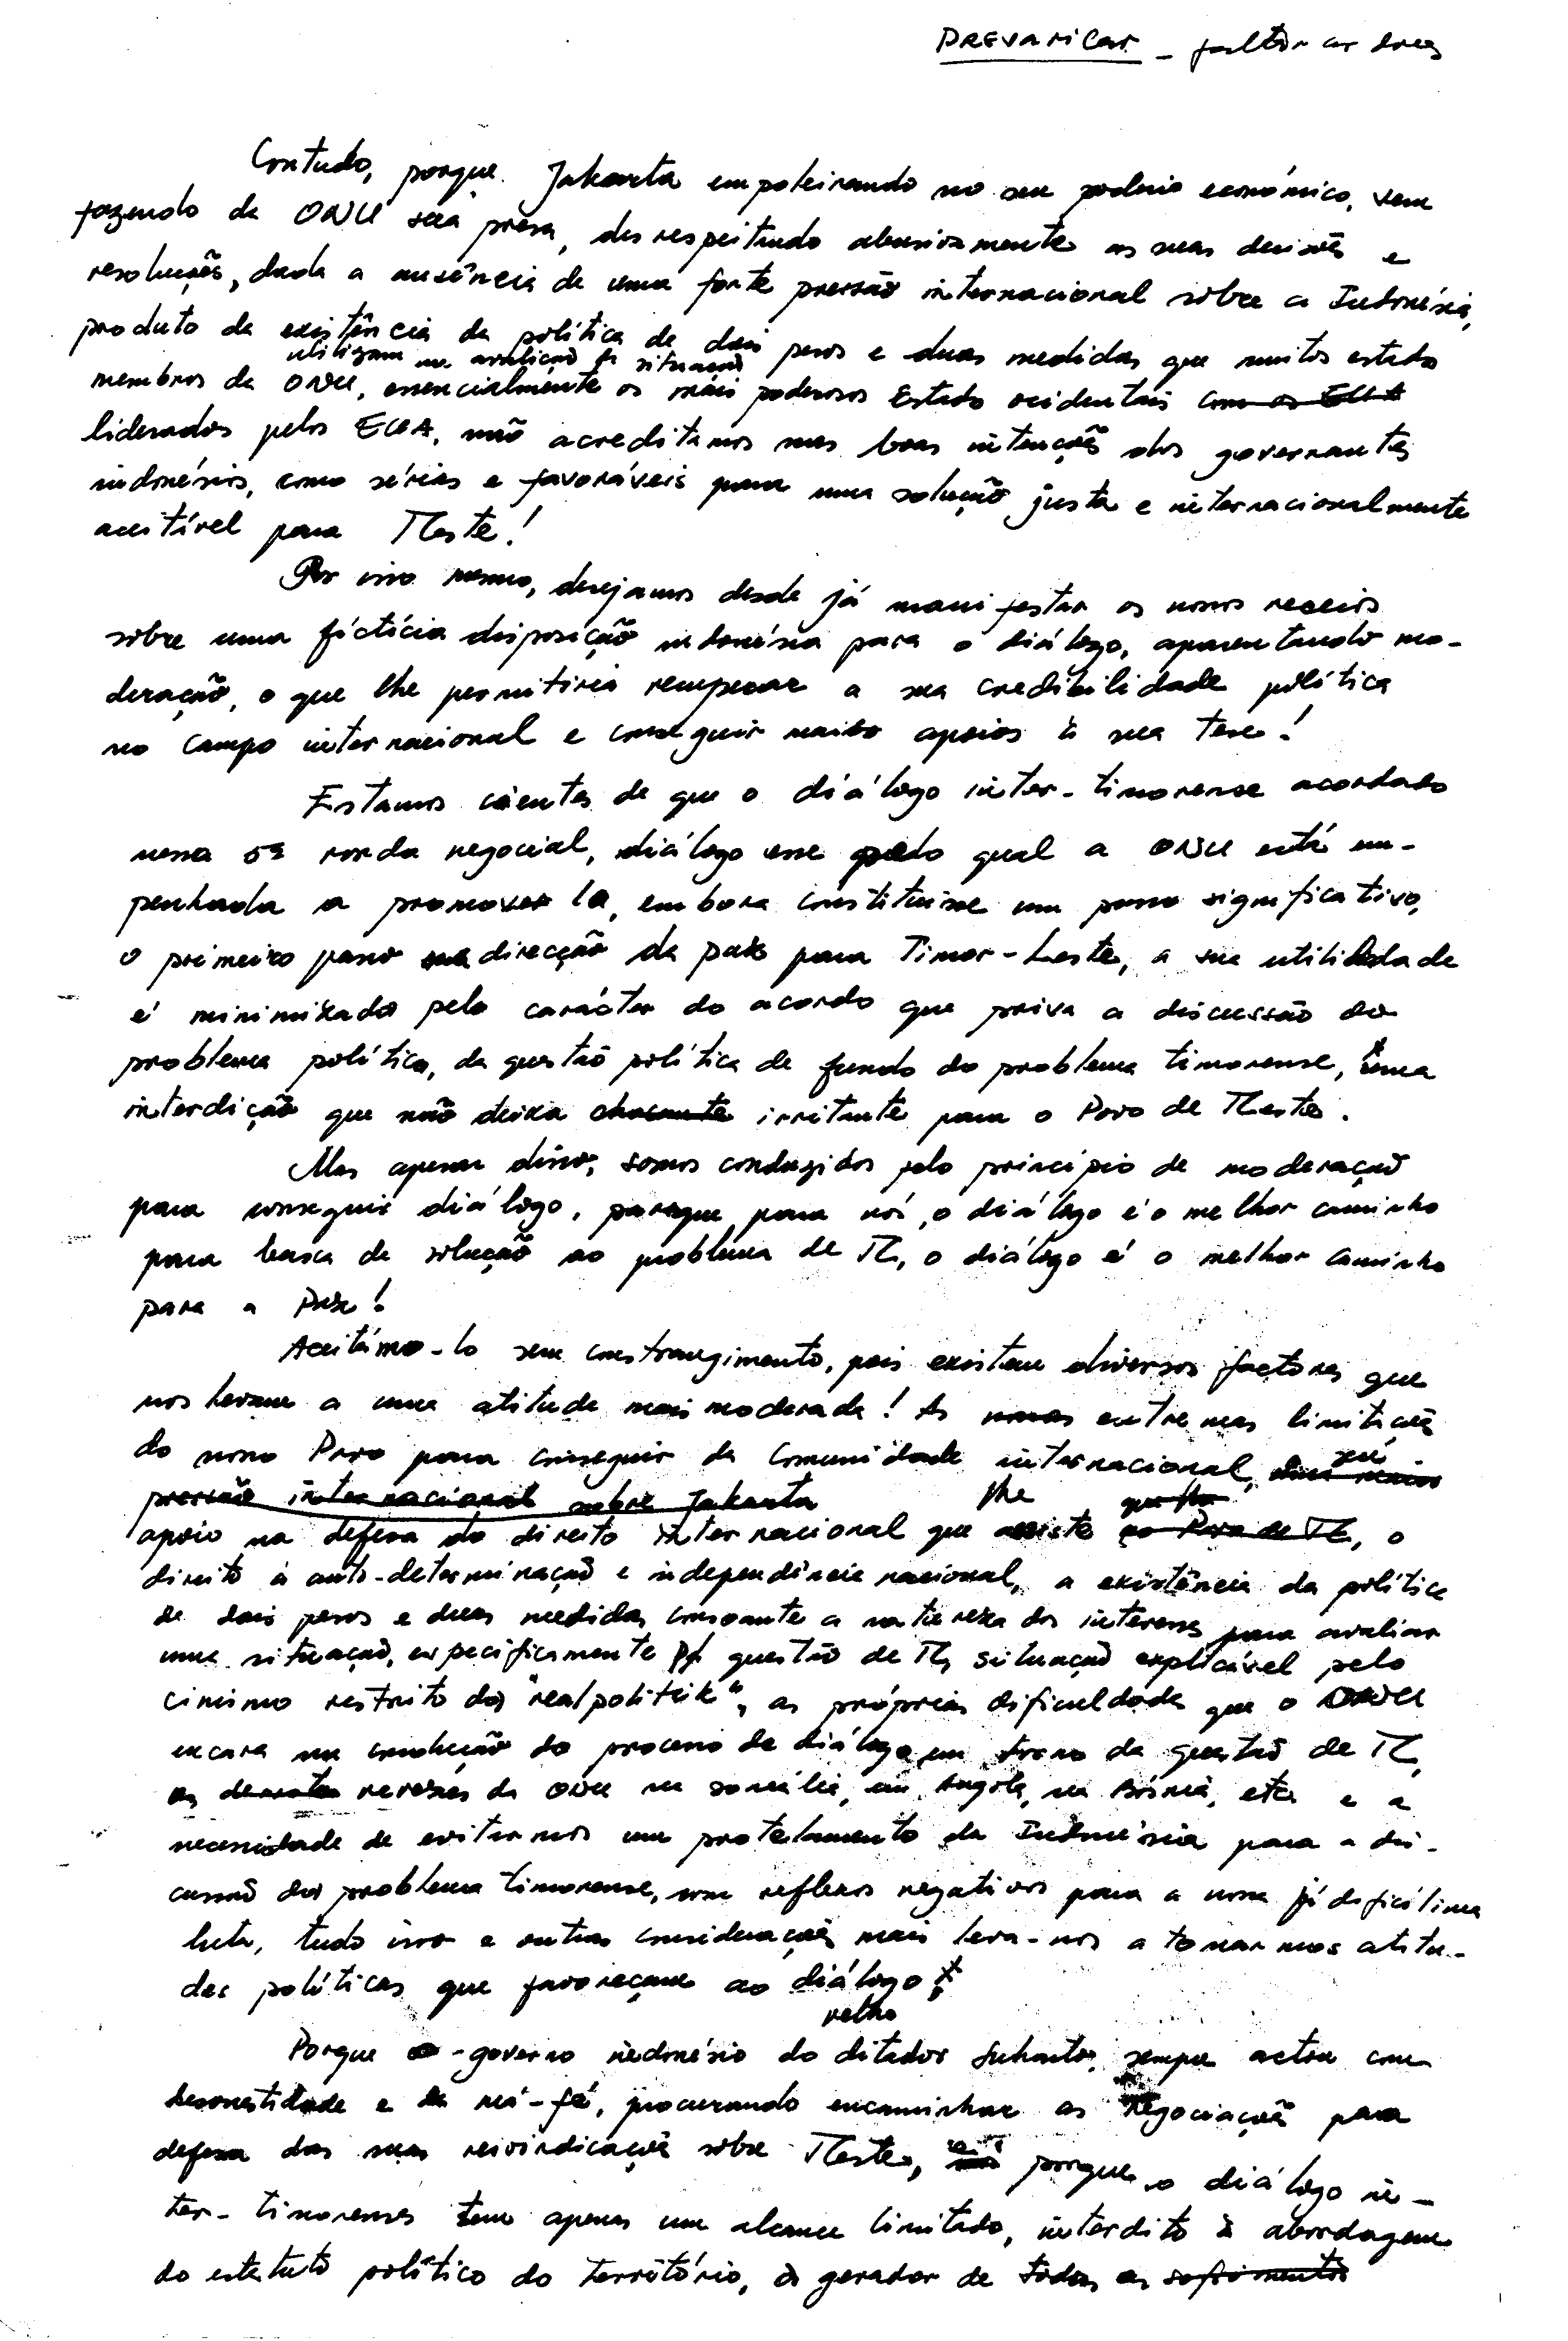 PREVARICAR - faltar ao dever
Contudo, porque Jakarta empoleirando no seu poderio económico, vem
fazendo da ONU sua presa, desrespeitando abusivamente as suas decisões e
resoluções, dada a ausência de uma forte pressão internacional sobre a Indonésia,
produto da existência da política de dois pesos e duas medidas que muitos estado
utilizam na avaliação da situação
membros da ONU, essencialmente os mais poderosos Estado ocidentais com os EUA
liderados pelos EUA, não acreditamos nas boas intenções dos governantes
indonésios, como sérias e favoráveis para uma solução justa e internacionalmente
aceitável para TLeste!
Por isso mesmo, desejamos desde já manifestar os nossos receios
sobre uma fictícia disposição indonésia para o diálogo, aparentando mo-
deração, o que lhe permitiria recuperar a sua credibilidade política
no campo internacional e conseguir maiso apoios à sua tese!
Estamos cientes de que o diálogo inter-timorense acordado
nessa 5ª ronda negocial, diálogo esse pelo qual a ONU está em-
penhada a promover lo, embora constituisse um passo significativo,
o primeiro passo na direcção da paz para Timor-Leste, a sua utilidade
é minimizado pelo carácter do acordo que priva a discussão do
problema político, da questão política de fundo do problema timorense, uma
interdição que não deixa chocante irritante para o Povo de TLeste.
Mas apesar disso, somos conduzidos pelo princípio de moderação
para conseguir diálogo, porque para nós, o diálogo é o melhor caminho
para busca de solução ao problema de TL, o diálogo é o melhor caminho
para a Paz!
Aceitámo-lo sem constrangimento, pois existem diversos factores que
nos levam a uma atitude mais moderada! As nossas extremas limitações
do nosso Povo para conseguir da Comunidade internacional, seu
pressão internacional sobre Jakarta lhe
apoio na defesa do direito internacional que assiste ao Povo de TL, o
direito à auto-determinação e independência nacional, a existência da política
de dois pesos e duas medidas consoante a natureza dos interesses para avaliar
uma situação, especificamente p/ questão de TL, situação explicável pelo
cinismo restrito da "realpolitik", as próprias dificuldade que o ONU
encara na condução do processo de diálogo em torno da questão de TL,
os reveses da ONU na Somália, em Angola, na Bósnia, etc e a
necessidade de evitarmos um protelamento da Indonésia para a dis-
cussão do problema timorense, com reflexos negativos para a nossa já dificílima
luta, tudo isso e outras considerações mais leva-nos a tomarmos atitu-
des políticas que favoreçam ao diálogo!
velho
Porque o governo indonésio do ditador Suharto, sempre actou com
desonestidade e má-fé, procurando encaminhar as negociações para
defesa das suas reivindicações sobre TLeste, porque o diálogo in-
ter-timorenses tem apenas um alcance limitado, interdito à abordagem
do estatuto político do território, o gerador de todos os sofrimentos